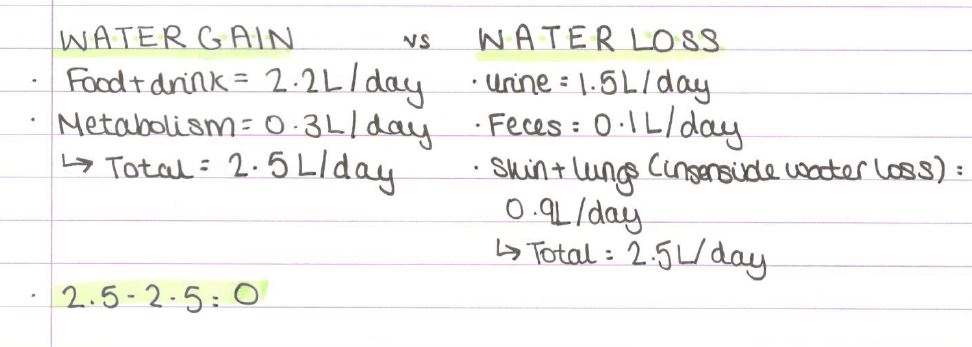 WATER GAIN vs WATER LOSS
· Food + drink = 2.2L/day
· Metabolism = 0.3L/day
↳ Total = 2.5L/day
· urine = 1.5L/day
· Feces : 0.1L/day
· Skin + lungs (insenside water loss) :
0.9L/day
↳ Total : 2.5L/day
· 2.5 - 2.5 : 0